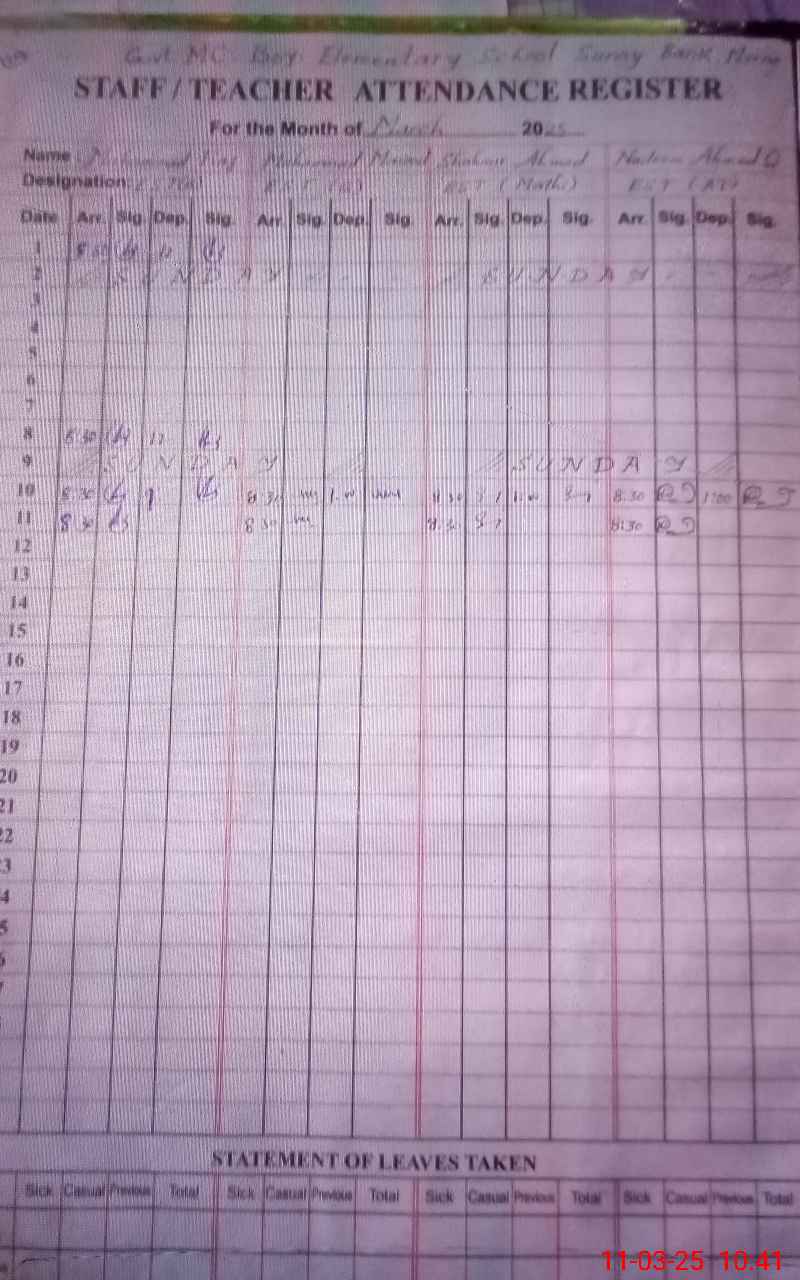 Govt MC Boy Elementary School Sunny Bank
STAFF / TEACHER ATTENDANCE REGISTER
For the Month of March 2025
Name Muhammad Muhammad Shaheer Ahmed Nadeem Ahmad
Designation EST (Math) EST
Date Arr. Sig. Dep. Sig. Arr. Sig. Dep. Sig. Arr. Sig. Dep. Sig. Arr. Sig. Dep. Sig.
1 8:30 12
2 SUNDAY SUNDAY
3
4
5
6
7
8 8:30 12
9 SUNDAY SUNDAY
10 8:30 1 8:30 1:00 8:30 1:00 8:30 1:00
11 8:30 8:30 8:30 8:30
12
13
14
15
16
17
18
19
20
21
22
3
4
5
STATEMENT OF LEAVES TAKEN
Sick Casual Previous Total Sick Casual Previous Total Sick Casual Previous Total Sick Casual Previous Total
11-03-25 10:41